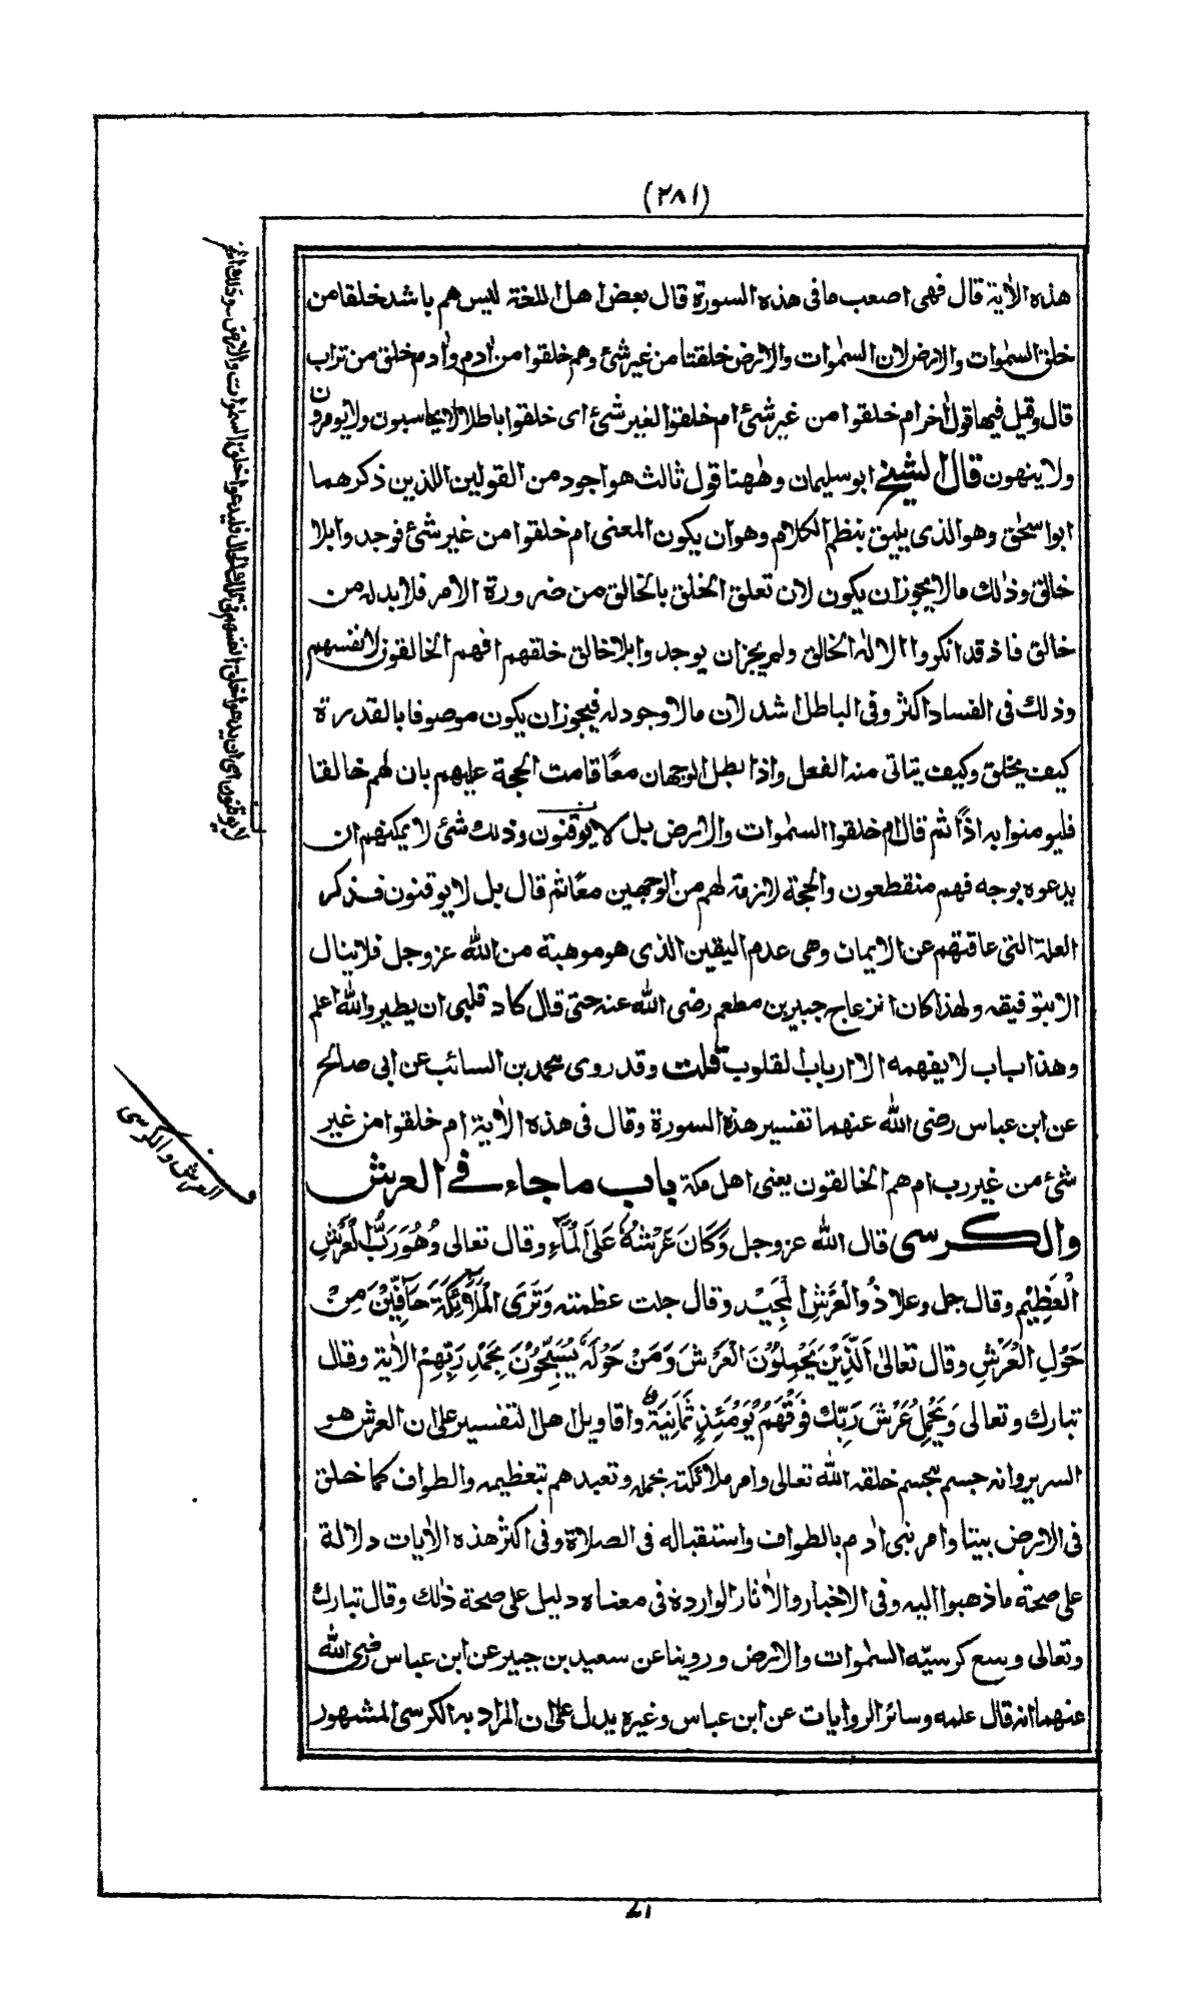 (٢٨١)
هذه الأية قال فهى اصعب ما فى هذه السورة قال بعض اهل اللغة ليس هم باشد خلقا من
خلق السمٰوات والارض لان السمٰوات والارض خلقتا من غير شئ وهم خلقوا من اٰدم واٰدم خلق من تراب
قال وقيل فيها قول اٰخر ام خلقوا من غير شئ ام خلقوا لغير شئ اى خلقوا باطلا لا يحاسبون ولا يؤمرون
ولا ينهون قال الشيخ ابو سليمان وهٰهنا قول ثالث هو اجود من القولين اللذين ذكرهما
ابو اسحٰق وهو الذى يليق بنظم الكلام وهو ان يكون المعنى ام خلقوا من غير شئ فوجدوا بلا
خالق وذٰلك ما لا يجوز ان يكون لان تعلق الخلق بالخالق من ضرورة الامر فلا بد له من
خالق فاذ قد انكروا الالٰه الخالق ولم يجز ان يوجدوا بلا خالق خلقهم افهم الخالقون لانفسهم
وذلك فى الفساد اكثر وفى الباطل اشد لان ما لا وجود له فيجوز ان يكون موصوفا بالقدرة
كيف يخلق وكيف يتاتى منه الفعل واذا بطل الوجهان معًا قامت الحجة عليهم بان لهم خالقا
فليومنوا به اذًا ثم قال ام خلقوا السمٰوات والارض بل لا يوقنون وذلك شئ لا يمكنهم ان
يدعوه بوجه فهم منقطعون والحجة لازمة لهم من الوجهين معًا ثم قال بل لا يوقنون فذكر
العلة التى عاقتهم عن الايمان وهى عدم اليقين الذى هو موهبة من الله عز وجل فلا ينال
الا بتوفيقه ولهذا كان انزعاج جبير بن مطعم رضى الله عنه حتى قال كاد قلبى ان يطير والله اعلم
وهذا باب لا يفهمه الا ارباب القلوب قلت وقد روى محمد بن السائب عن ابى صالح
عن ابن عباس رضى الله عنهما تفسير هذه السورة وقال فى هذه الأية ام خلقوا من غير
شئ من غير رب ام هم الخالقون يعنى اهل مكة باب ما جاء فى العرش
والكرسى قال الله عز وجل وَكَانَ عَرْشُهُ عَلَى الْمَاءِ وقال تعالى وَهُوَ رَبُّ الْعَرْشِ
الْعَظِيْمِ وقال جل وعلا ذُو الْعَرْشِ الْمَجِيْد وقال جلت عظمته وَتَرَى الْمَلَآئِكَةَ حَافِّيْنَ مِنْ
حَوْلِ الْعَرْشِ وقال تعالىٰ اَلَّذِيْنَ يَحْمِلُوْنَ الْعَرْشَ وَمَنْ حَوْلَهُ يُسَبِّحُوْنَ بِحَمْدِ رَبِّهِمْ الأية وقال
تبارك وتعالى وَيَحْمِلُ عَرْشَ رَبِّكَ فَوْقَهُمْ يَوْمَئِذٍ ثَمَانِيَةٌ واقاويل اهل التفسير على ان العرش هو
السرير وانه جسم مجسم خلقه الله تعالى وامر ملائكته بحمله وتعبدهم بتعظيمه والطواف كما خلق
فى الارض بيتا وامر بنى اٰدم بالطواف واستقباله فى الصلاة وفى اكثر هذه الأيات دلالة
على صحة ما ذهبوا اليه وفى الاخبار والأثار الواردة فى معناه دليل على صحة ذٰلك وقال تبارك
وتعالى وسع كرسيّه السمٰوات والارض وروينا عن سعيد بن جبير عن ابن عباس رضى الله
عنهما انه قال علمه وسائر الروايات عن ابن عباس وغيره يدل على ان المراد به الكرسى المشهور
العرش والكرسى